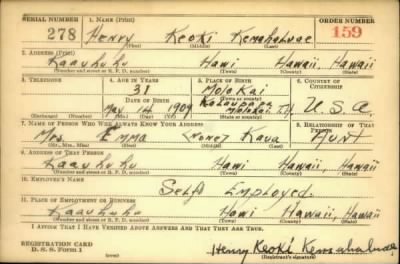 SERIAL NUMBER 1. NAME (Print) ORDER NUMBER
278 Henry Keoki Kemahaluae 159
(First) (Middle) (Last)
2. ADDRESS (Print)
Kaauhuhu Hawi Hawaii, Hawaii
(Number and street or R. F. D. number) (Town) (County) (State)
3. TELEPHONE 4. AGE IN YEARS 5. PLACE OF BIRTH 6. COUNTRY OF CITIZENSHIP
31 Molokai
DATE OF BIRTH (Town or county)
May 14 1909 Kalaupapa Molokai, T.H. U.S.A.
(Exchange) (Number) (Mo.) (Day) (Yr.) (State or country)
7. NAME OF PERSON WHO WILL ALWAYS KNOW YOUR ADDRESS 8. RELATIONSHIP OF THAT PERSON
Mrs. Emma (None) Kaua Aunt
(Mr., Mrs., Miss) (First) (Middle) (Last)
9. ADDRESS OF THAT PERSON
Kaauhuhu Hawi Hawaii, Hawaii
(Number and street or R. F. D. number) (Town) (County) (State)
10. EMPLOYER'S NAME
Self Employed.
11. PLACE OF EMPLOYMENT OR BUSINESS
Kaauhuhu Hawi Hawaii, Hawaii
(Number and street or R. F. D. number) (Town) (County) (State)
I AFFIRM THAT I HAVE VERIFIED ABOVE ANSWERS AND THAT THEY ARE TRUE.
REGISTRATION CARD
D. S. S. Form 1 (over) Henry Keoki Kemahaluae
(Registrant's signature)